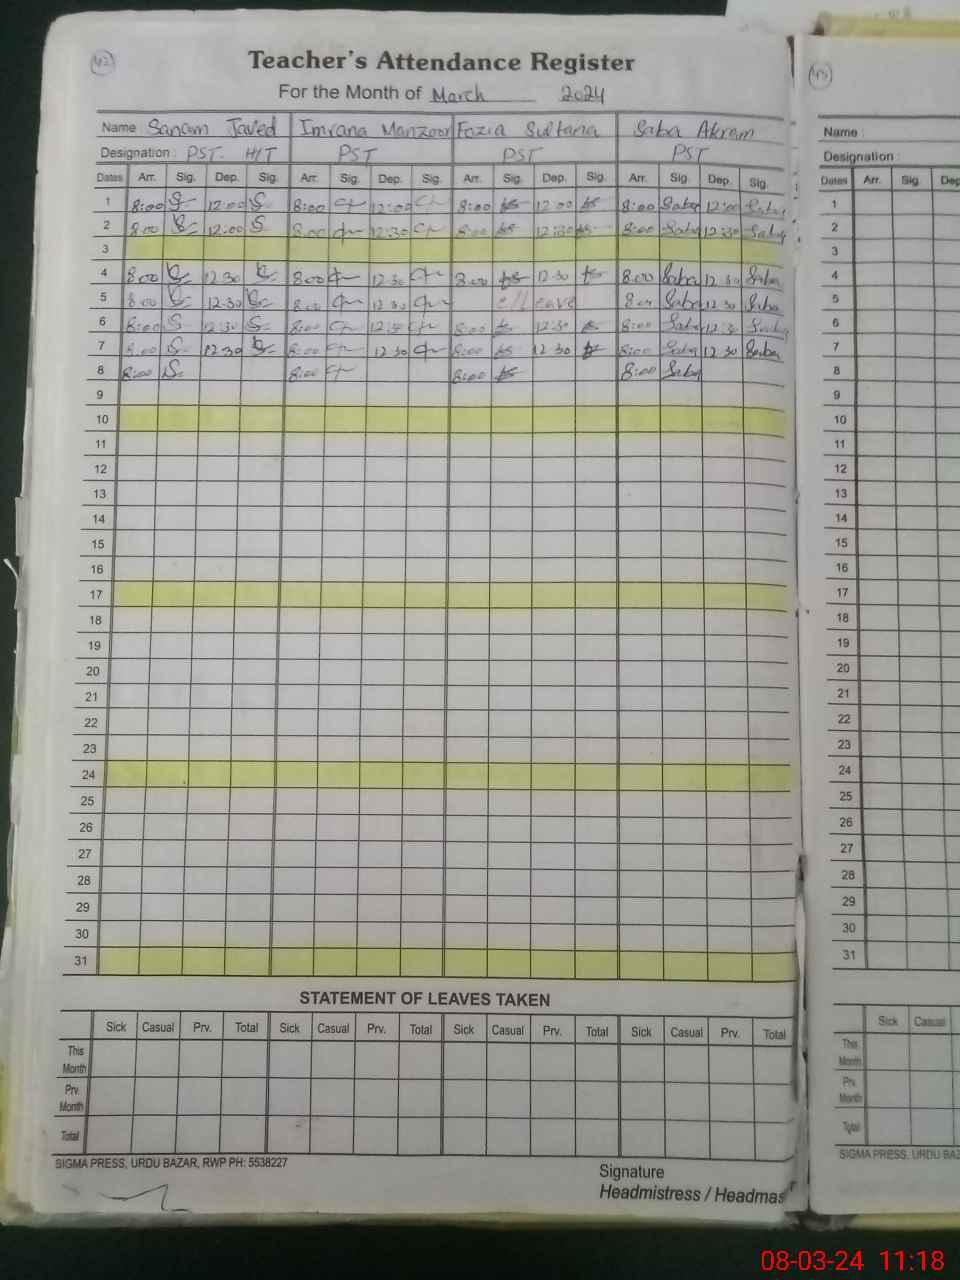 42
Teacher's Attendance Register
For the Month of March 2024
Name Sanam Javed Imrana Manzoor Fozia Sultana Saba Akram
Designation : PST. H/T PST PST PST
Dates Arr. Sig. Dep. Sig. Arr. Sig. Dep. Sig. Arr. Sig. Dep. Sig. Arr. Sig. Dep. Sig.
1 8:00 12:00 8:00 12:00 8:00 12:00 8:00 Saba 12:00 Saba
2 8:00 12:00 8:00 12:30 8:00 12:30 8:00 Saba 12:30 Saba
3
4 8:00 12:30 8:00 12:30 8:00 12:30 8:00 Saba 12:30 Saba
5 8:00 12:30 8:00 12:30 leave 8:00 Saba 12:30 Saba
6 8:00 12:30 8:00 12:30 8:00 12:30 8:00 Saba 12:30 Saba
7 8:00 12:30 8:00 12:30 8:00 12:30 8:00 Saba 12:30 Saba
8 8:00 8:00 8:00 8:00 Saba
9
10
11
12
13
14
15
16
17
18
19
20
21
22
23
24
25
26
27
28
29
30
31
STATEMENT OF LEAVES TAKEN
Sick Casual Prv. Total Sick Casual Prv. Total Sick Casual Prv. Total Sick Casual Prv. Total
This
Month
Prv.
Month
Total
SIGMA PRESS, URDU BAZAR, RWP PH: 5538227
Signature
Headmistress / Headmas
Name :
Designation :
Dates Arr. Sig. Dep
1
2
3
4
5
6
7
8
9
10
11
12
13
14
15
16
17
18
19
20
21
22
23
24
25
26
27
28
29
30
31
Sick Casual
This
Month
Prv.
Month
Total
SIGMA PRESS, URDU BAZ
08-03-24 11:18